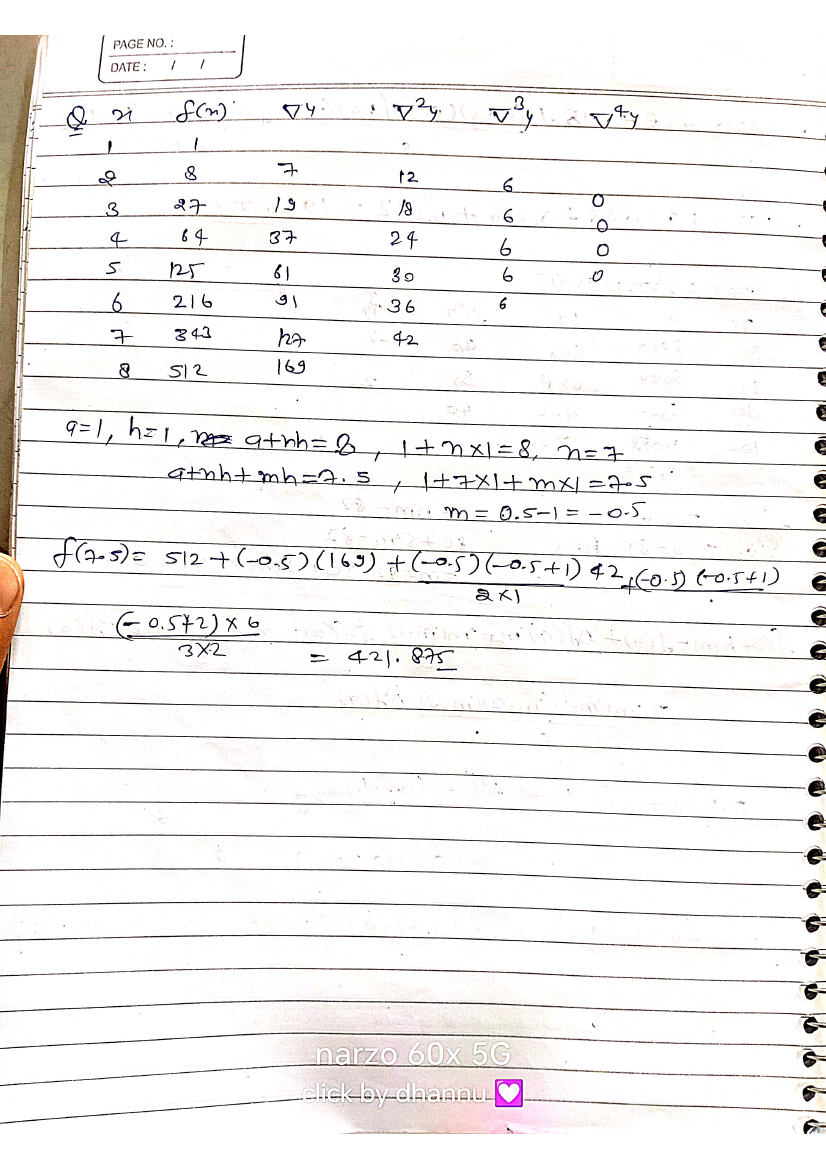 PAGE NO. :
DATE : / /
Q x f(x) ∇y ∇²y ∇³y ∇⁴y
1 1
2 8 7 12 6
3 27 19 18 6 0
4 64 37 24 6 0
5 125 61 30 6 0
6 216 91 36 6 0
7 343 127 42
8 512 169
a=1, h=1, a+nh=8, 1+n×1=8, n=7
a+nh+mh=7.5, 1+7×1+m×1=7.5
m = 0.5-1 = -0.5
f(7.5) = 512 + (-0.5)(169) + (-0.5)(-0.5+1) 42 + (-0.5) (-0.5+1)
2×1
(-0.5+2) × 6
3×2 = 421.875
narzo 60x 5G
click by dhannu